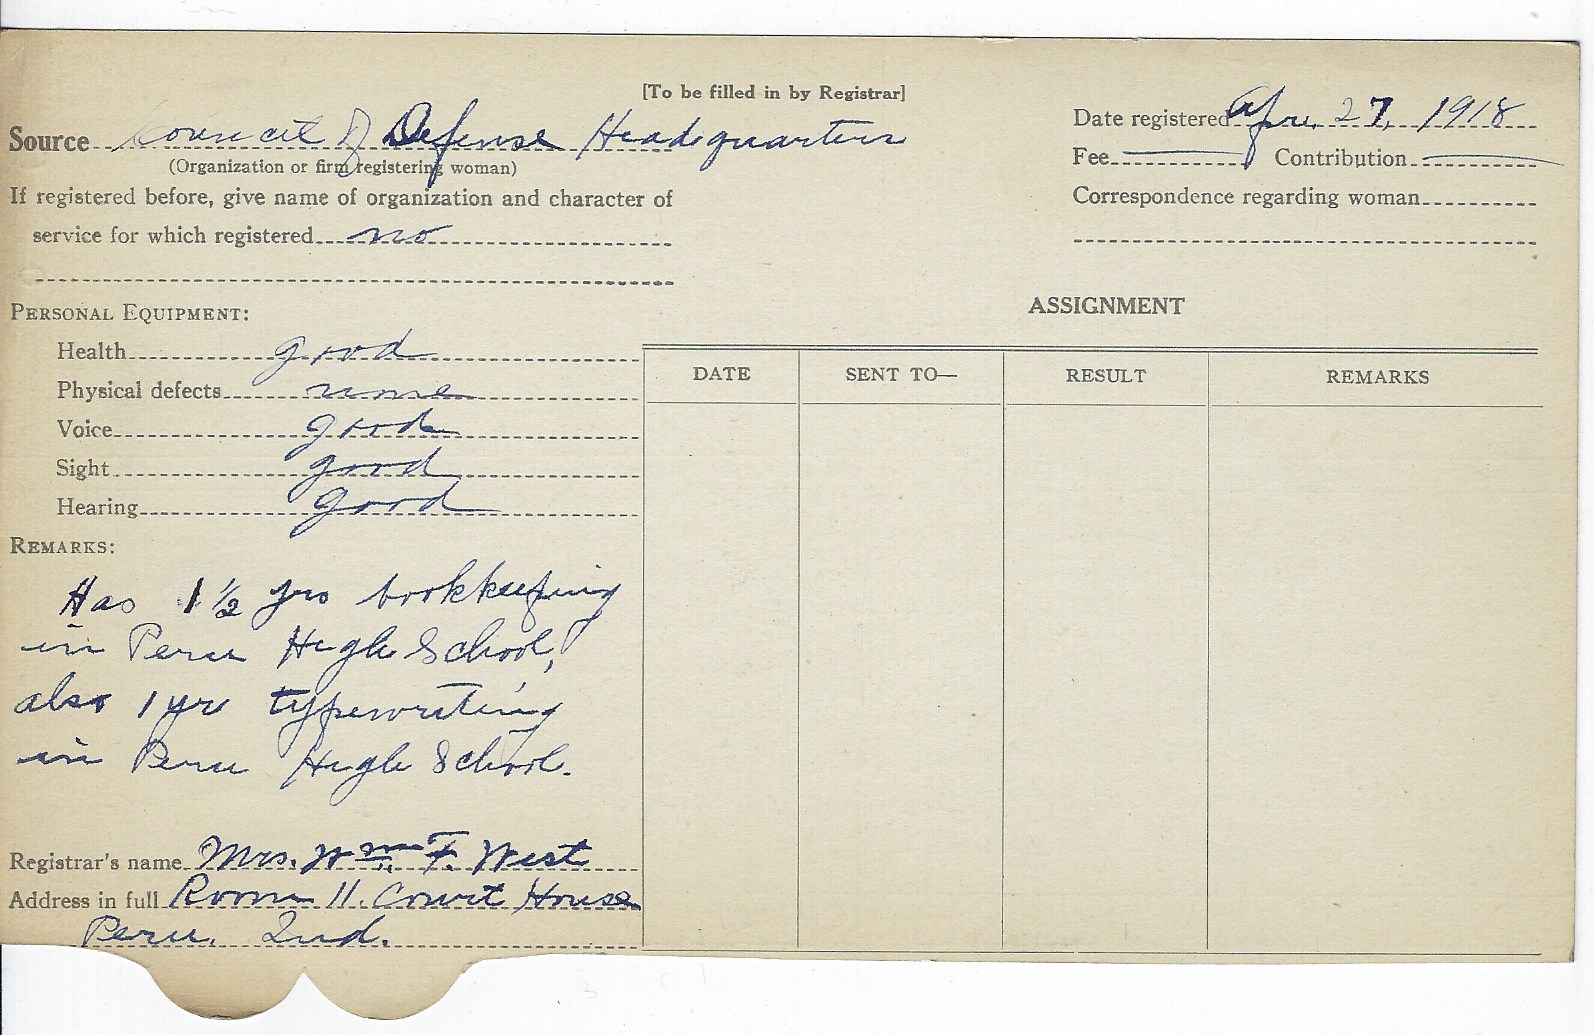 [To be filled in by Registrar]
Source Council of Defense Headquarters
(Organization or firm registering woman)
If registered before, give name of organization and character of
service for which registered no
Date registered Apr. 27, 1918
Fee Contribution
Correspondence regarding woman
PERSONAL EQUIPMENT:
Health good
Physical defects none
Voice good
Sight good
Hearing good
REMARKS:
Has 1 1/2 yrs bookkeeping
in Peru High School,
also 1 yr typewriting
in Peru High School.
Registrar's name Mrs. Wm. F. West
Address in full Room 11. Court House
Peru, Ind.
ASSIGNMENT
DATE SENT TO— RESULT REMARKS